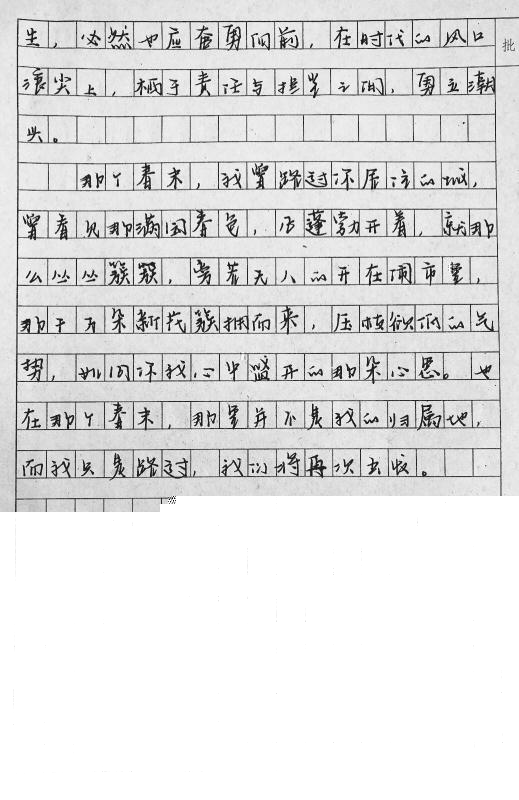 生，必然也应奋勇向前，在时代的风口
批
浪尖上，栖于责任与担当之间，勇立潮
头。
那个春末，我曾路过你居住的城，
曾看见那满园春色，正蓬勃开着，就那
么丛丛簇簇，旁若无人的开在闹市里，
那千万朵新花簇拥而来，压枝欲低的气
势，如同你我心中盛开的那朵心思。也
在那个春末，那里并不是我的归属地，
而我只是路过，我们将再次出收。